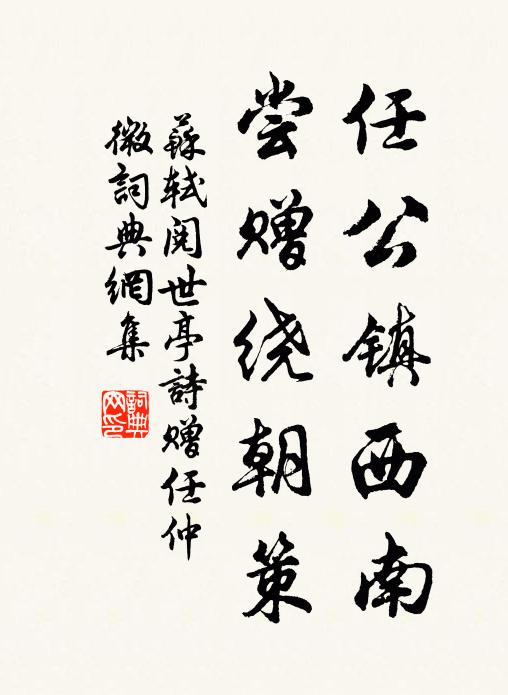 任公镇西南
尝赠绕朝策
蘇軾閱世亭詩赠任仲
微詞典網集
詞典
网印